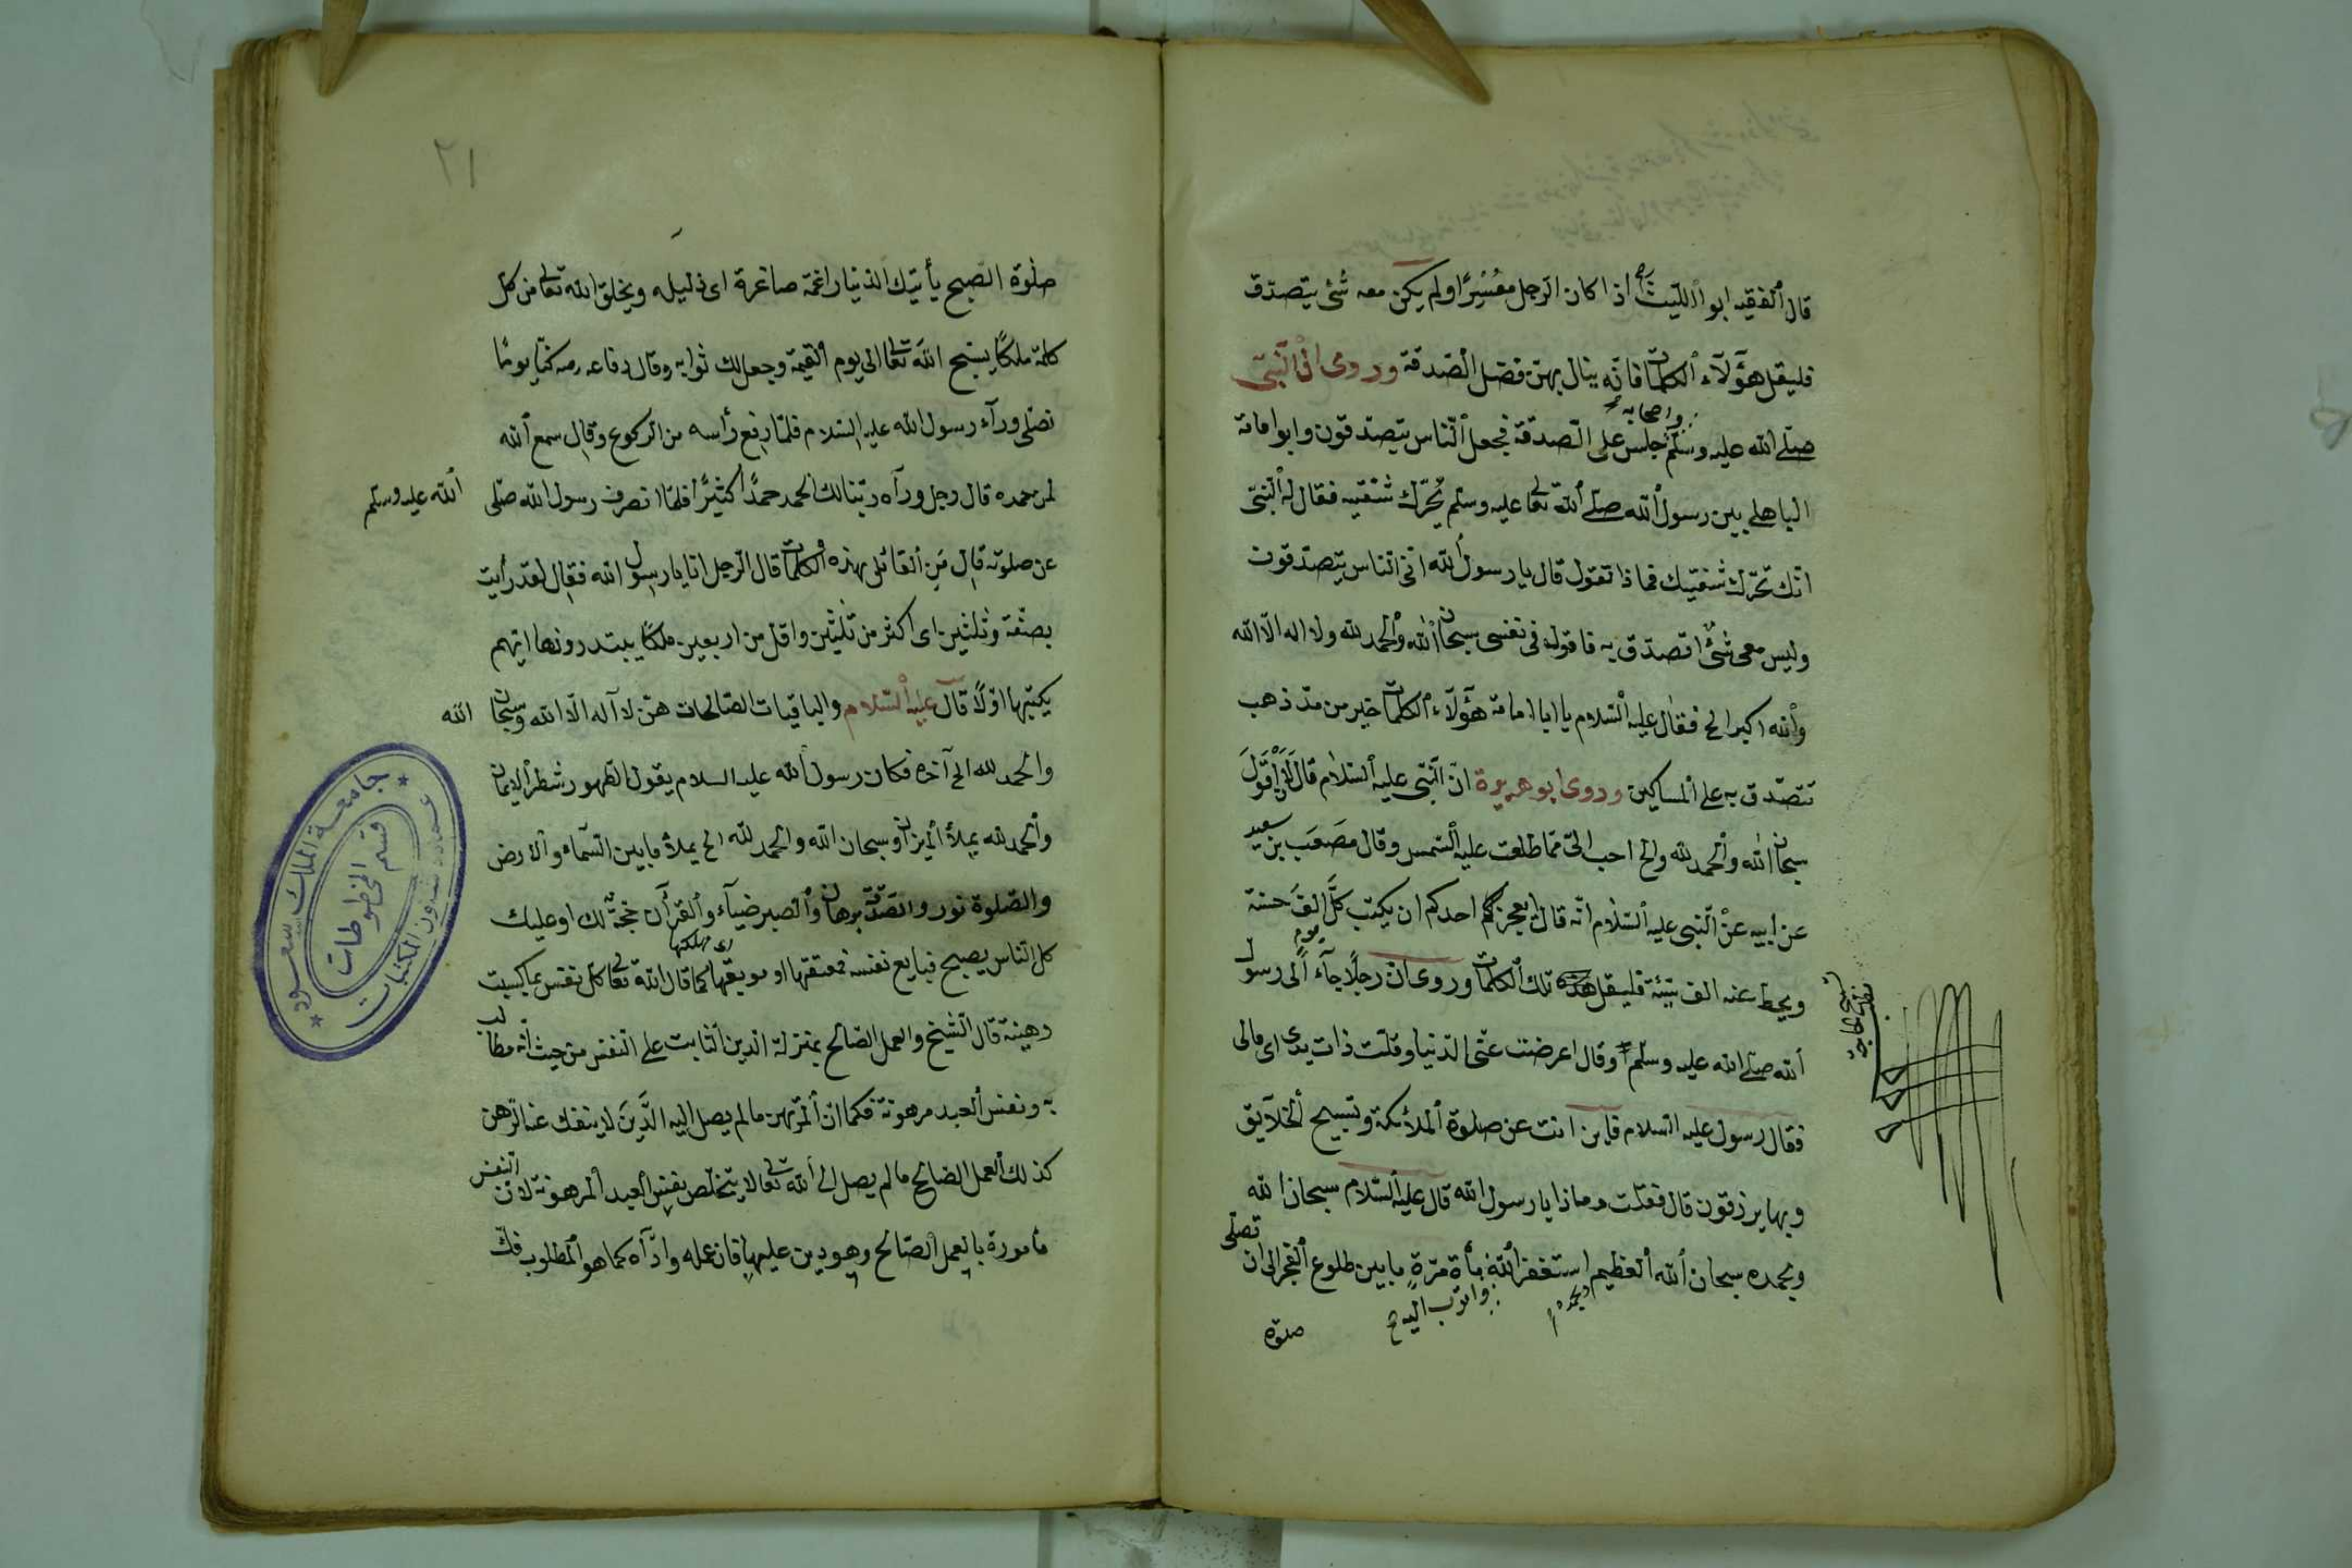 قال الفقيه ابو الليث اذا كان الرجل معسرًا ولم يكن معه شئ يتصدق
فليقل هؤلاء الكلمات فانه ينال بهن فضل الصدقة وروى ان النبى
صلى الله عليه وسلم واصحابه جلس على الصدقة فجعل الناس يتصدقون وابو امامة
الباهلى بين رسول الله صلى الله تعالى عليه وسلم يُحرّك شفتيه فقال له النبى
انك تحرك شفتيك فماذا تقول قال يا رسول الله انى الناس يتصدقون
وليس معى شئ اتصدق به فاقول فى نفسى سبحان الله والحمد لله ولا اله الا الله
والله اكبر الخ فقال عليه السلام يا ابا امامة هؤلاء الكلمات خير من مدّ ذهب
تتصدق به على المساكين وروى ابو هريرة ان النبى عليه السلام قال لان اقول
سبحان الله والحمد لله والخ احب الىّ مما طلعت عليه الشمس وقال مصعب بن سعيد
عن ابيه عن النبى عليه السلام انه قال ايعجز احدكم ان يكتب كل يوم الف حسنة
ويحط عنه الف سيئة فليقل تلك الكلمات وروى ان رجلاً جآء الى رسول
الله صلى الله عليه وسلم وقال اعرضت عنى الدنيا وقلت ذات يدى اى مالى
فقال رسول عليه السلام فاين انت عن صلوة الملائكة وتسبيح الخلايق
وبها يرزقون قال فقلت وماذا يا رسول الله قال عليه السلام سبحان الله
وبحمده سبحان الله العظيم استغفر الله مأة مرّة ما بين طلوع الفجر الى ان تصلى
وبحمده
واتوب اليه
صلوة
٢١
صلوة الصبح يأتيك الدنيا راغمة صاغرة اى ذليله ويخلق الله تعالى من كل
كلمة ملكًا يسبح الله تعالى الى يوم القيمة وجعل لك ثوابه وقال رفاعه رضه كنّا يومًا
نصلى ورآء رسول الله عليه السلام فلما رفع رأسه من الركوع وقال سمع الله
لمن حمده قال رجل ورآه ربنا لك الحمد حمدًا كثيرًا فلما انصرف رسول الله صلى الله عليه وسلم
عن صلوته قال من القائل بهذه الكلمات قال الرجل انا يا رسول الله فقال لقد رأيت
بضعة وثلثين اى اكثر من ثلثين واقل من اربعين ملكًا يبتدرونها ايهم
يكتبها اوّلاً قال عليه السلام والباقيات الصالحات هن لا آله الا الله وسبحان الله
والحمد لله الى آخره فكان رسول الله عليه السلام يقول الطهور شطر الايمان
والحمد لله يملأ الميزان وسبحان الله والحمد لله الخ يملأ ما بين السماء والارض
والصلوة نور والصدقة برهان والصبر ضيآء والقرآن حجة لك او عليك
كل الناس يصبح فبايع نفسه فمعتقها او موبقها اى مهلكها كما قال الله تعالى كل نفس بما كسبت
رهينة قال الشيخ والعمل الصالح بمنزلة الدين الثابت على النفس من حيث انه مطالب
به ونفس العبد مرهونة فكما ان المرتهن ما لم يصل اليه الدَّين لا ينفك عنه الرهن
كذلك العمل الصالح ما لم يصل الى الله تعالى لا يتخلص نفس العبد المرهونة لان النفس
مأمورة بالعمل الصالح وهو دين عليها فان عمله وادآه كما هو المطلوب فكّ
جامعة الملك سعود
عمادة شؤون المكتبات
قسم المخطوطات